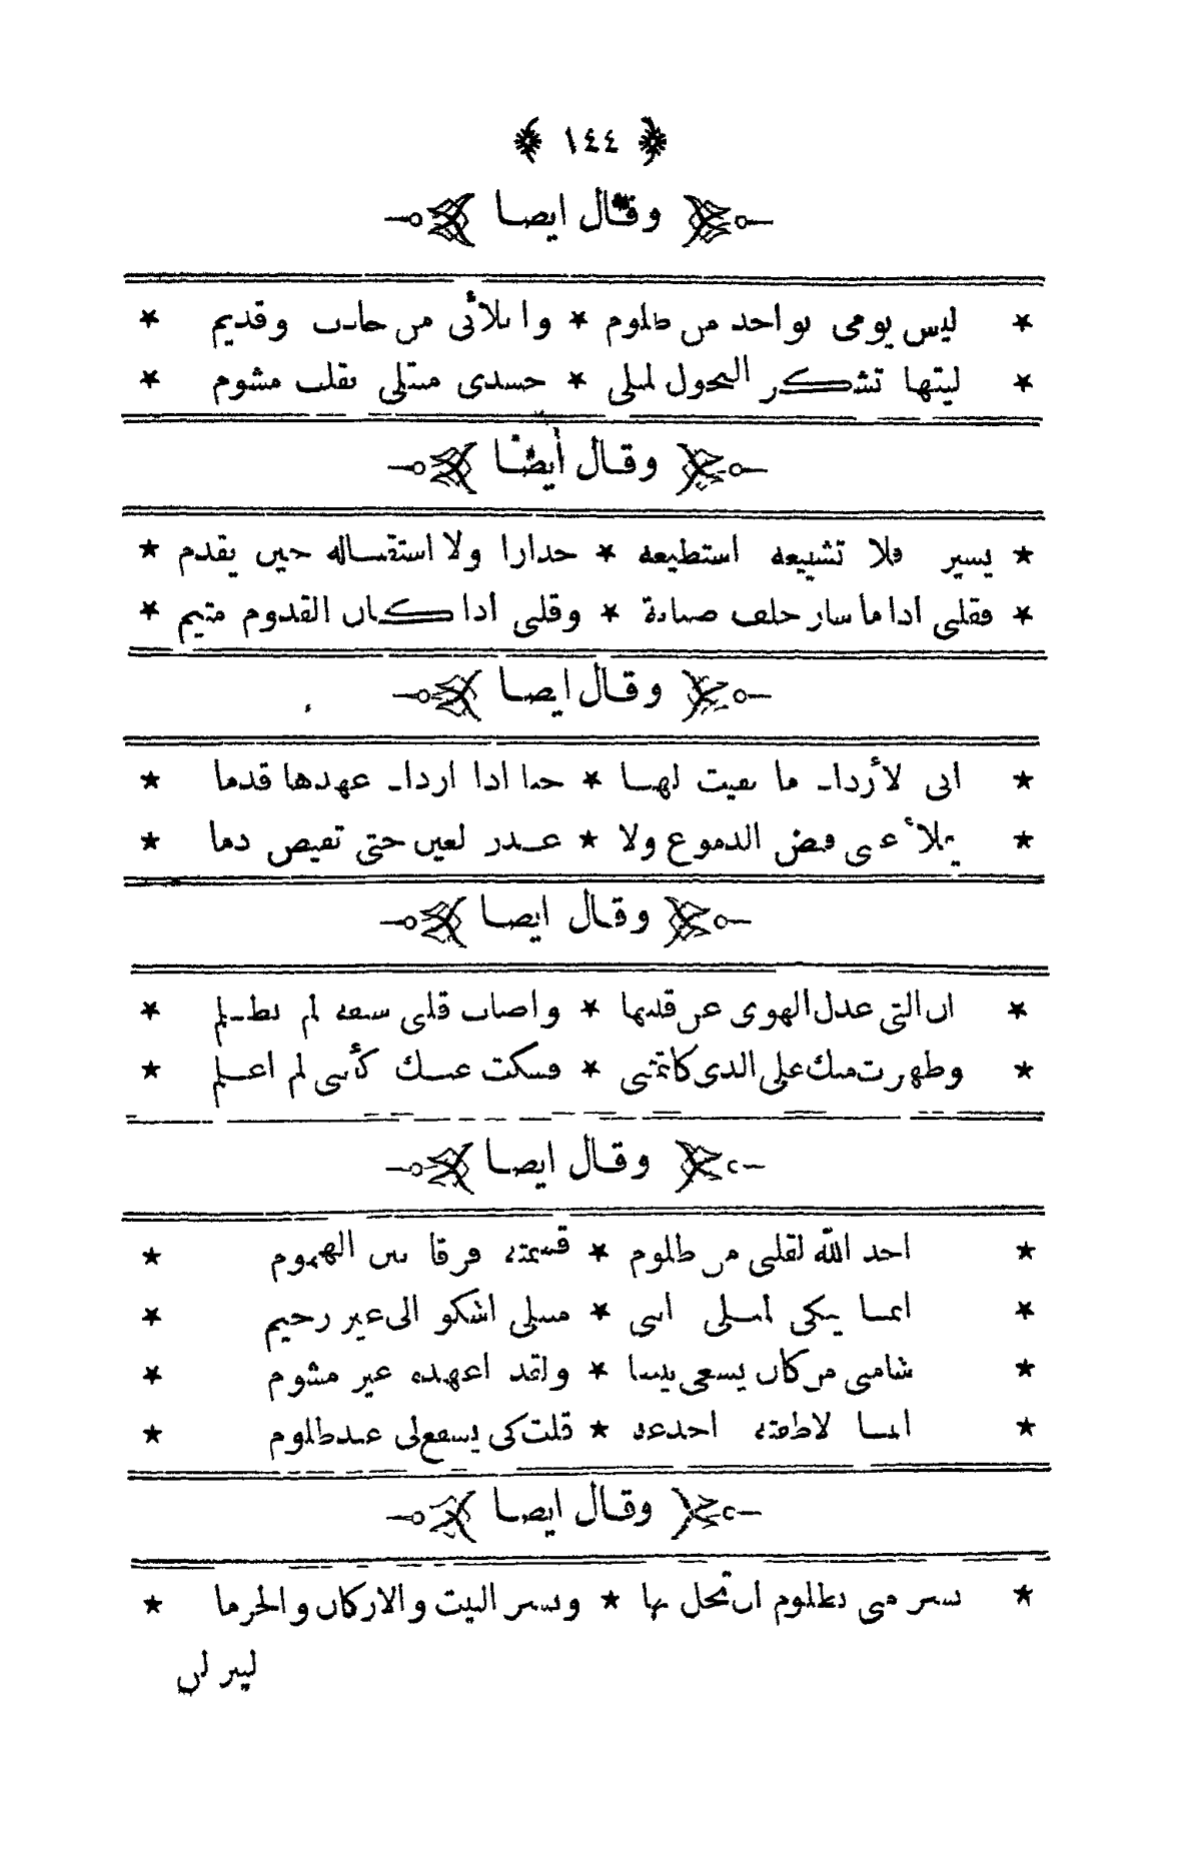 ١٤٤
وقال ايضا
ليس يومى بواحد من ظلوم * وابلائى من حادث وقديم
ليتها تشكر النحول لمبلى * جسدى مبتلى بقلب مشوم
وقال أيضًا
يسير فلا تشييعه استطيعه * حذارا ولا استقباله حين يقدم
فقلبى اذا ما سار خلف صبابة * وقلبى اذا كان القدوم متيم
وقال ايضا
انى لأزداد ما بقيت لها * حبا اذا ازداد عهدها قدما
فيض الدموع ولا * عذر لعين حتى تفيض دما
وقال ايضا
ان التى عدل الهوى عن قلبها * واصاب قلبى سهمه لم تظلم
وظهرت منك على الذى كاتمتنى * فسكت عنك كأننى لم اعلم
وقال ايضا
اخذ الله لقلبى من ظلوم * قسمته فرقا بين الهموم
انما يبكى لمبلى اننى * مبتلى اشكو الى غير رحيم
شامنى من كان يسعى بيننا * ولقد اعهده غير مشوم
لاطفته اخدعه * قلت كى يسمع لى عند ظلوم
وقال ايضا
بسر منى بظلوم ان تحل بها * ويسر البيت والاركان والحرما
ليبر لن